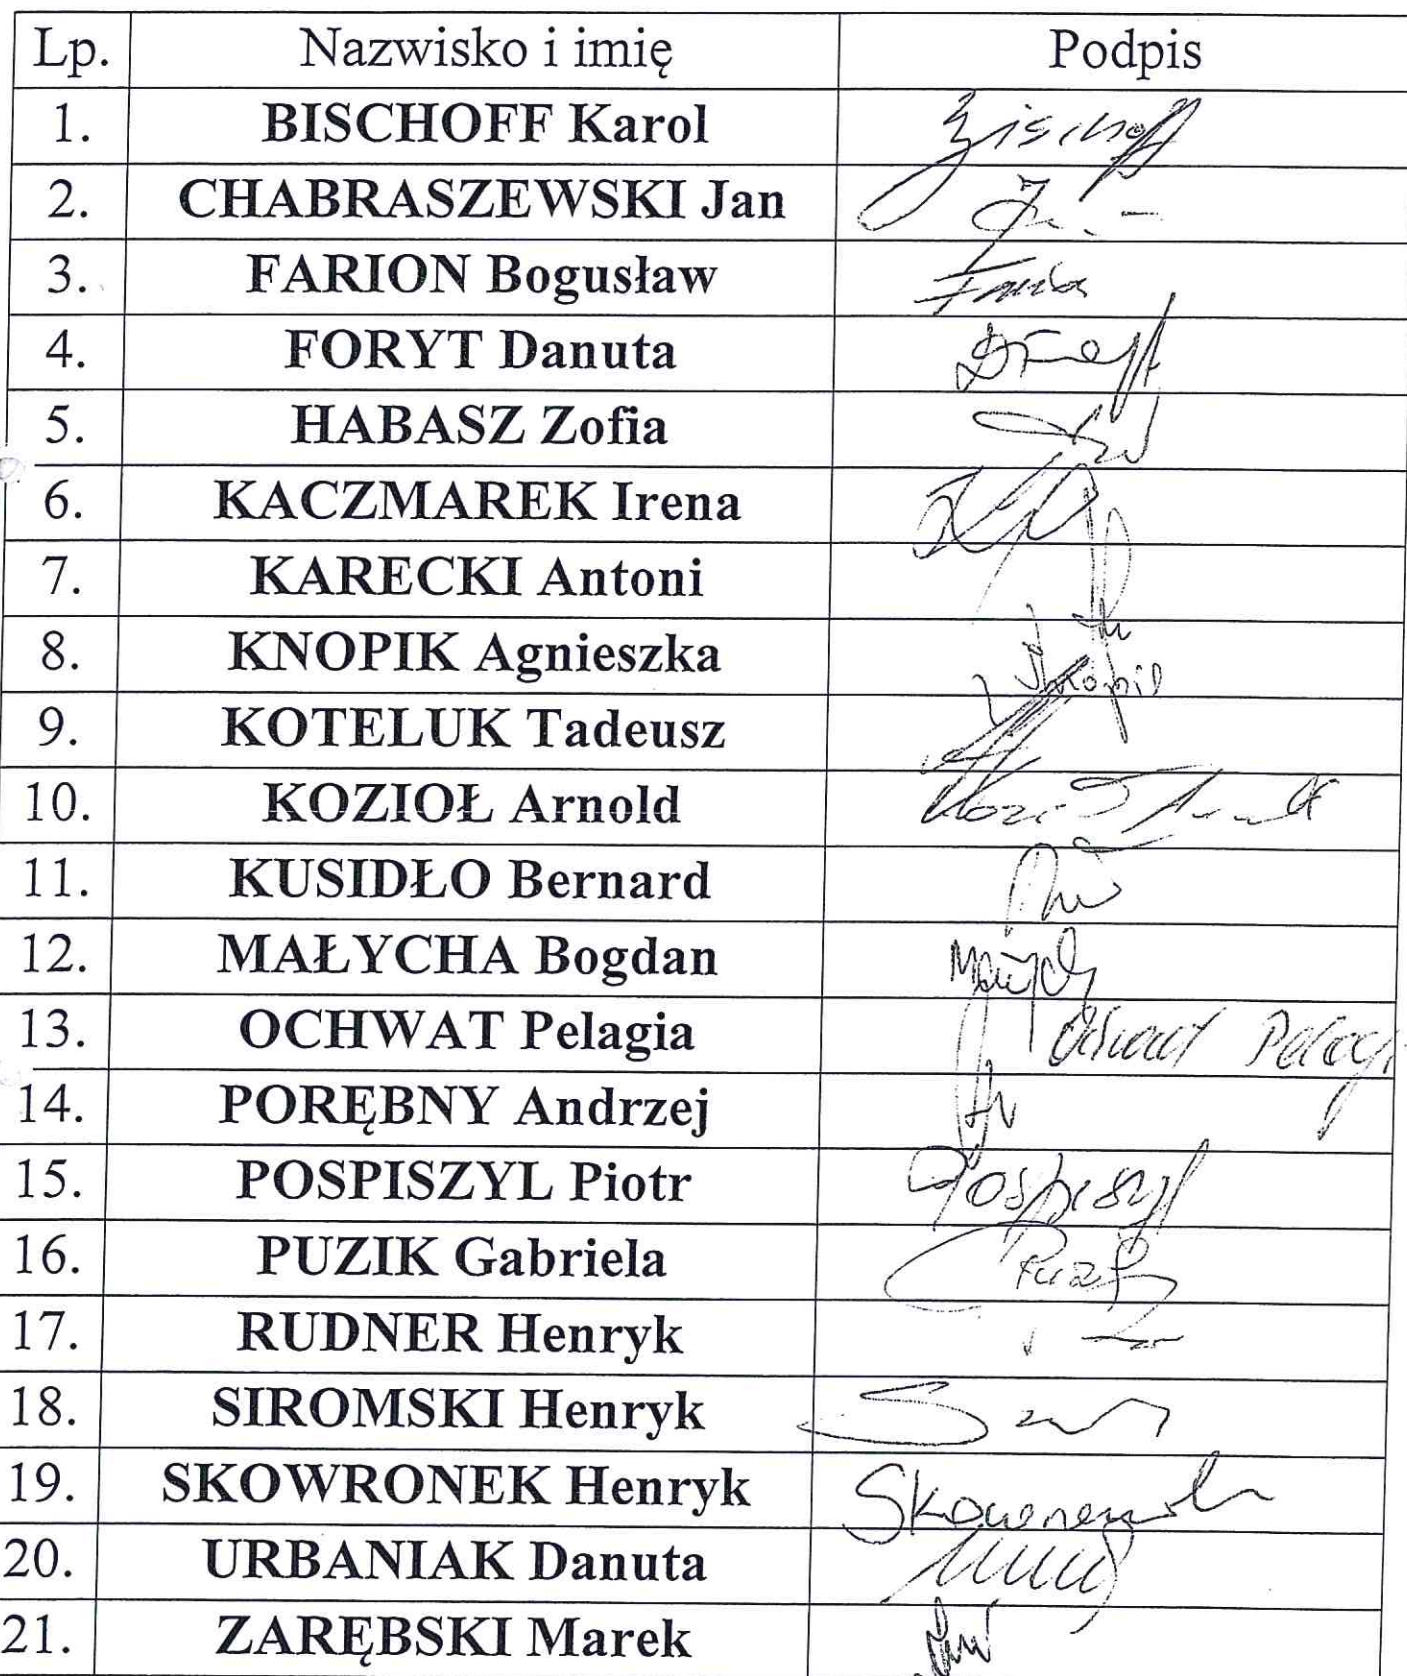 Lp. Nazwisko i imię Podpis
1. BISCHOFF Karol Bischoff
2. CHABRASZEWSKI Jan
3. FARION Bogusław
4. FORYT Danuta
5. HABASZ Zofia
6. KACZMAREK Irena
7. KARECKI Antoni
8. KNOPIK Agnieszka
9. KOTELUK Tadeusz
10. KOZIOŁ Arnold
11. KUSIDŁO Bernard
12. MAŁYCHA Bogdan
13. OCHWAT Pelagia
14. PORĘBNY Andrzej
15. POSPISZYL Piotr Pospiszyl
16. PUZIK Gabriela
17. RUDNER Henryk
18. SIROMSKI Henryk
19. SKOWRONEK Henryk
20. URBANIAK Danuta
21. ZARĘBSKI Marek